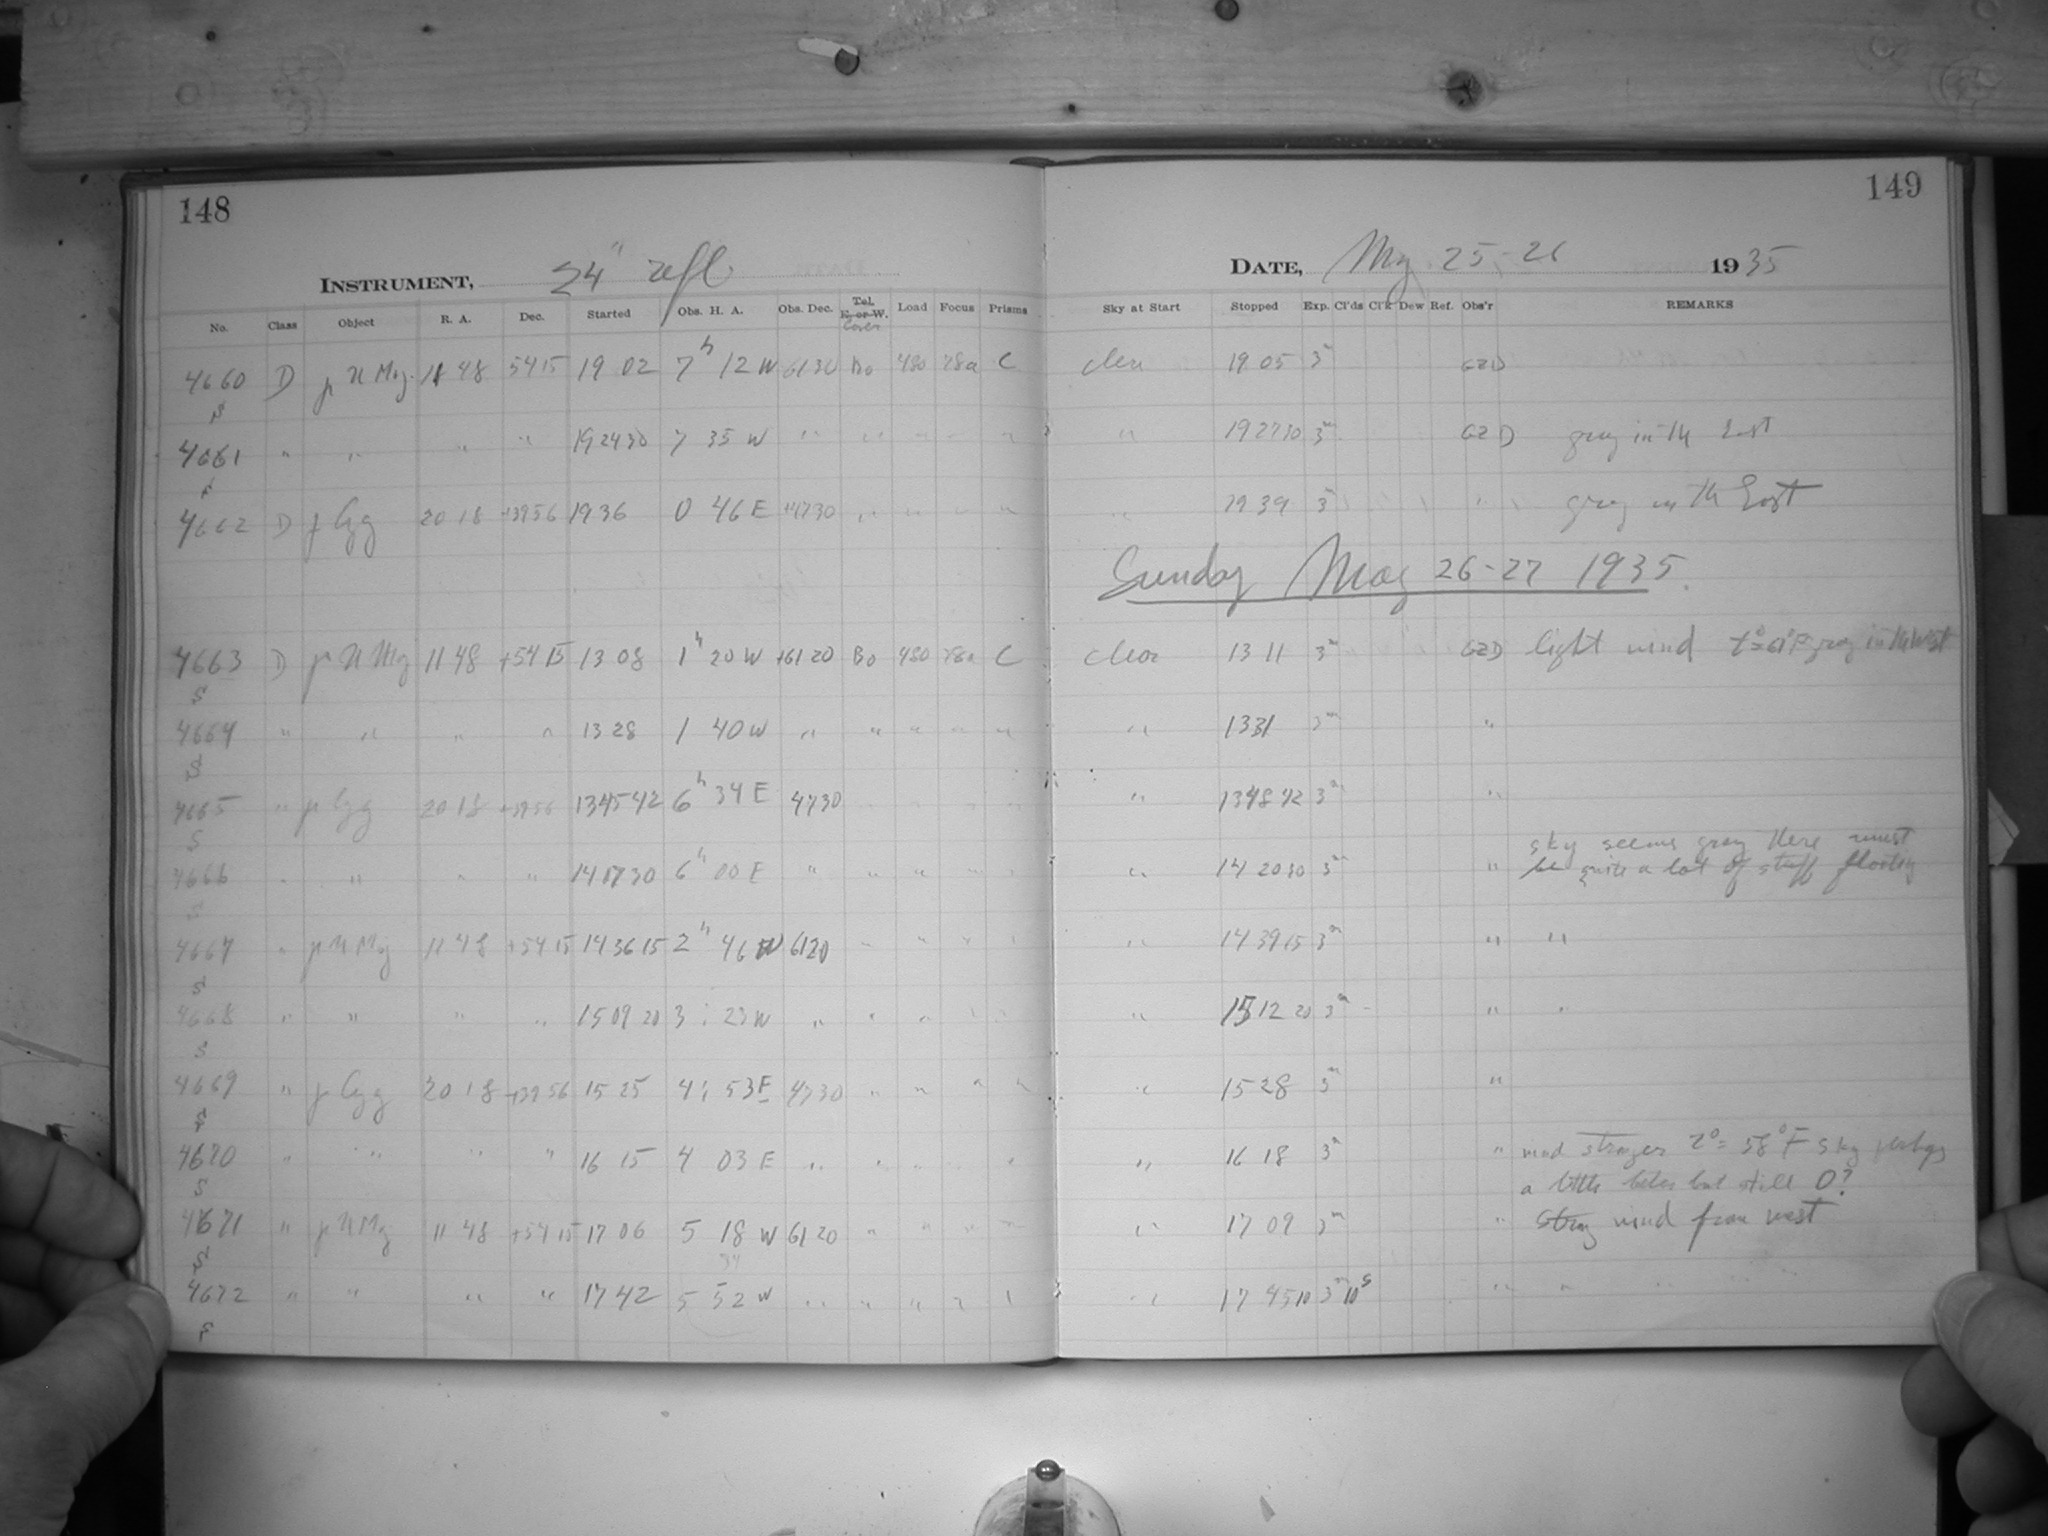 148
INSTRUMENT, 24" refl.
No. Class Object R. A. Dec. Started Obs. H. A. Obs. Dec. Tel. E. or W. Cover Load Focus Prisms
4660 D γ U Maj. 11 48 54 15 19 02 7h 12 W Bo 480 78a C
S
4661 " " " " 19 24 30 7 35 W " " " " "
4662 D γ Cyg 20 18 +39 56 19 36 0 46 E +4730 " " " "
4663 D γ U Maj 11 48 +54 15 13 08 1h 20 W +61 20 Bo 480 78a C
S
4664 " " " " 13 28 1 40 W " " " " "
S
4665 " γ Cyg 20 18 +39 56 13 45 42 6h 34 E 4730
S
4666 " " " " 14 17 30 6h 00 E " " " " "
S
4667 " γ U Maj 11 48 +54 15 14 36 15 2h 46 W 6120 " " " "
S
4668 " " " " 15 09 20 3 : 23 W " " " " "
S
4669 " γ Cyg 20 18 +39 56 15 25 4 : 53 E 4730 " " " "
S
4670 " " " " 16 15 4 03 E " " " " "
S
4671 " γ U Maj 11 48 +54 15 17 06 5 18 W 6120 " " " "
S
4672 " " " " 17 42 5 52 W " " " " "
S
149
DATE, May 25-26 1935
Sky at Start Stopped Exp. Cl'ds Cl'k Dew Ref. Obs'r REMARKS
clear 19 05 3m GZD
" 19 27 30 3m GZD gray in th East
" 19 39 3m " gray in th East
Sunday May 26-27 1935.
clear 13 11 3m GZD light wind gray in th West
" 13 31 3m "
" 13 48 42 3m "
sky seems gray there must
" 14 20 30 3m " be quite a lot of stuff floating
" 14 39 15 3m " "
" 15 12 20 3m " "
" 15 28 3m "
" 16 18 3m " wind stronger t°= 58°F sky perhaps
a little better but still 0?
" 17 09 3m " Strong wind from west
" 17 45 10 3m 10s " "